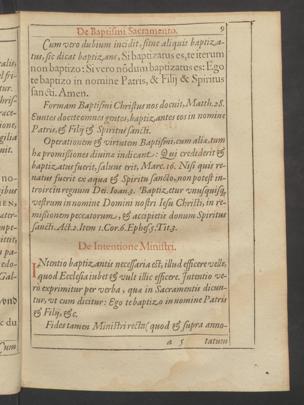 De Baptismi Sacramento. 9
Cum vero dubium incidit, sitne aliquis baptiza-
tus, sic dicat baptizans, Si baptizatus es, te iterum
non baptizo: Si vero nōdum baptizatus es: Ego
te baptizo in nomine Patris, & Filij & Spiritus
sancti. Amen.
Formam Baptismi Christus nos docuit, Matth. 28.
Euntes docete omnes gentes, baptizantes eos in nomine
Patris, & Filij & Spiritus sancti.
Operationem & virtutem Baptismi, cum aliæ tum
hæ promissiones divinæ indicant: Qui crediderit &
baptizatus fuerit, salvus erit, Marc. 16. Nisi quis re-
natus fuerit ex aqua & Spiritu sancto, non potest in-
troire in regnum Dei. Ioan. 3. Baptizetur vnusquisq;
vestrum in nomine Domini nostri Iesu Christi, in re-
missionem peccatorum, & accipietis donum Spiritus
sancti. Act. 2. Item 1. Cor. 6. Ephes. 5. Tit. 3.
De Intentione Ministri.
INtentio baptizantis necessaria est, illud efficere velle,
quod Ecclesia iubet & vult illic efficere. Intentio ve-
rò exprimitur per verba, quæ in Sacramentis dicun-
tur, vt cum dicitur: Ego te baptizo in nomine Patris
& Filij, &c.
Fides tamen Ministri recta, quod & supra anno-
a 5 tatum